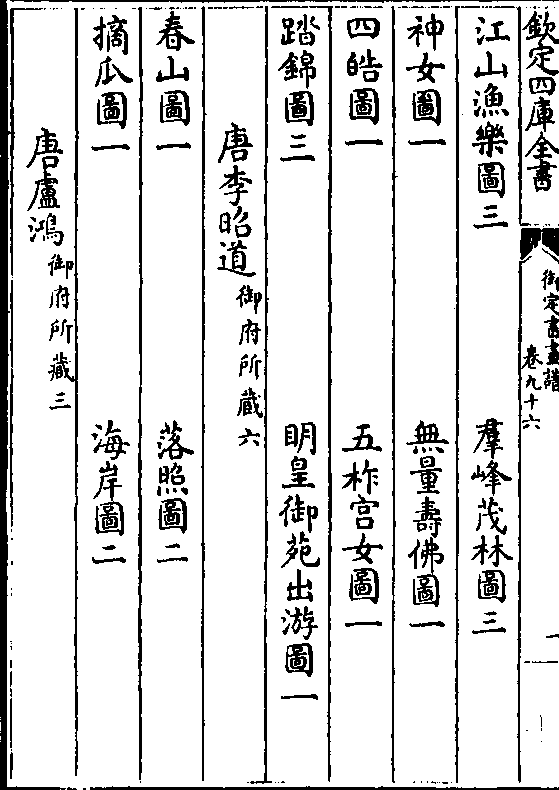 欽定四庫全書
御定書畫譜
卷九十六
江山漁樂圖三 羣峰茂林圖三
神女圖一 無量壽佛圖一
四皓圖一 五柞宮女圖一
踏錦圖三 明皇御苑出游圖一
唐李昭道御府所藏六
春山圖一 落照圖二
摘瓜圖一 海岸圖二
唐盧鴻御府所藏三